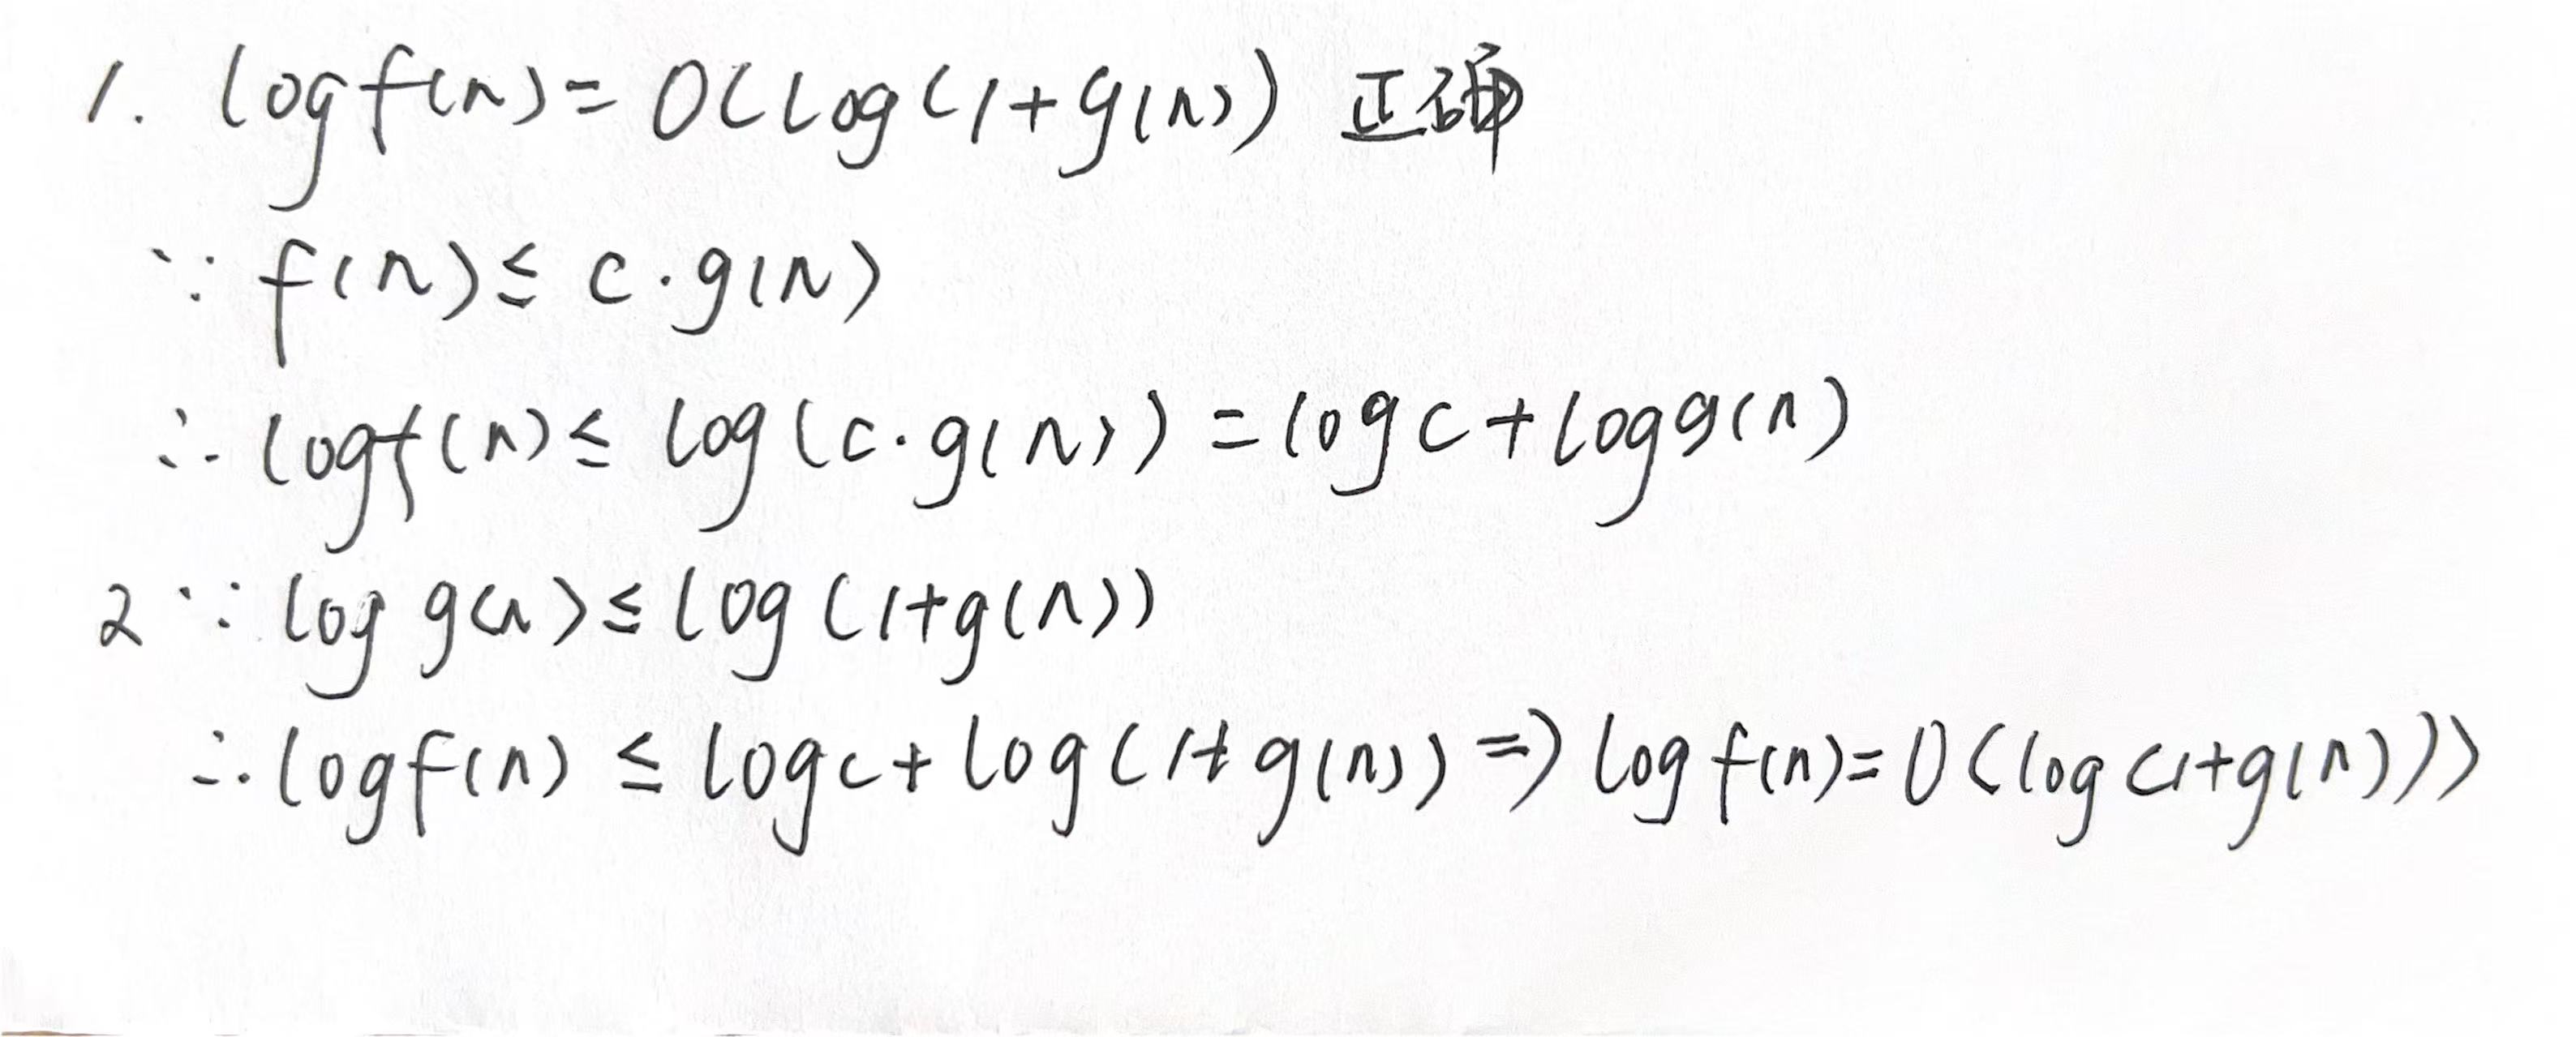 1. log f(n) = O(log(1+g(n)) 正确
∵ f(n) ≤ c·g(n)
∴ log f(n) ≤ log(c·g(n)) = log c + log g(n)
2 ∵ log g(n) ≤ log(1+g(n))
∴ log f(n) ≤ log c + log(1+g(n)) ⇒ log f(n) = O(log(1+g(n)))